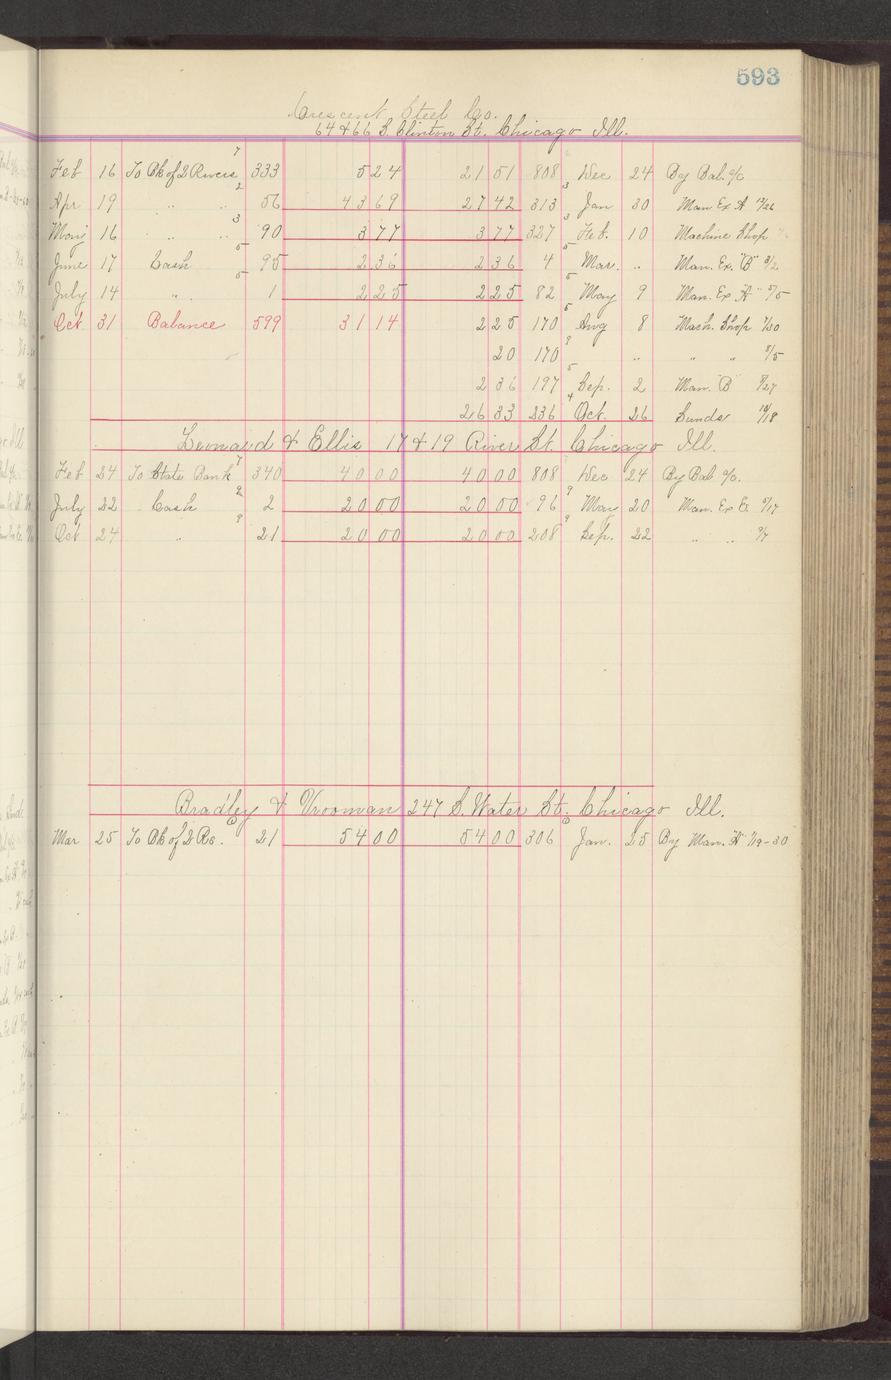 593
Crescent Steel Co.
64 & 66 S. Clinton St. Chicago Ill.
Feb 16 To Bk of 2 Rivers 7 333 5 24 21 51 808 Dec 24 By Bal. %
Apr 19 " " 2 56 43 69 27 42 313 3 Jan 30 Man Ex A
16 " " 3 90 3 77 3 77 327 3 Feb. 10 Machine Shop
June 17 Cash 5 95 2 36 2 36 4 5 Mar. " Man. Ex. "B" 3/2
July 14 " 5 1 2 25 2 25 82 5 May 9 Man. Ex "A" 5/5
Oct 31 Balance 599 31 14 2 25 170 5 Aug 8 Mach. Shop 7/30
20 170 " " " 8/5
2 36 197 5 Sep. 2 Man. "B" 8/27
26 33 236 4 Oct. 26 Sunds 10/18
Leonard & Ellis 17 & 19 River St. Chicago Ill.
Feb 24 To State Bank 7 340 40 00 40 00 808 Dec 24 By Bal %.
July 22 Cash 2 2 20 00 20 00 96 9 May 20 Man. Ex E 5/17
Oct 24 " 9 21 20 00 20 00 208 9 Sep. 22 " " 9/7
Bradley & Vrooman 247 S. Water St. Chicago Ill.
Mar 25 To Bk of 2 Rs. 21 54 00 54 00 306 Jan. 25 By Man. "A" 1/19-30